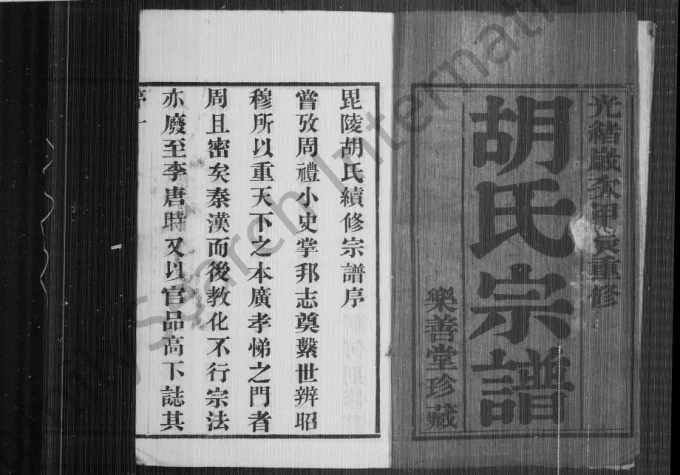 胡氏宗譜
重修
樂善堂珍藏
毘陵胡氏續修宗譜序
嘗攷周禮小史掌邦志奠繫世辨昭
穆所以重天下之本廣孝悌之門者
周且密矣秦漢而後教化不行宗法
亦廢至李唐時又以官品高下誌其
序一
Search International